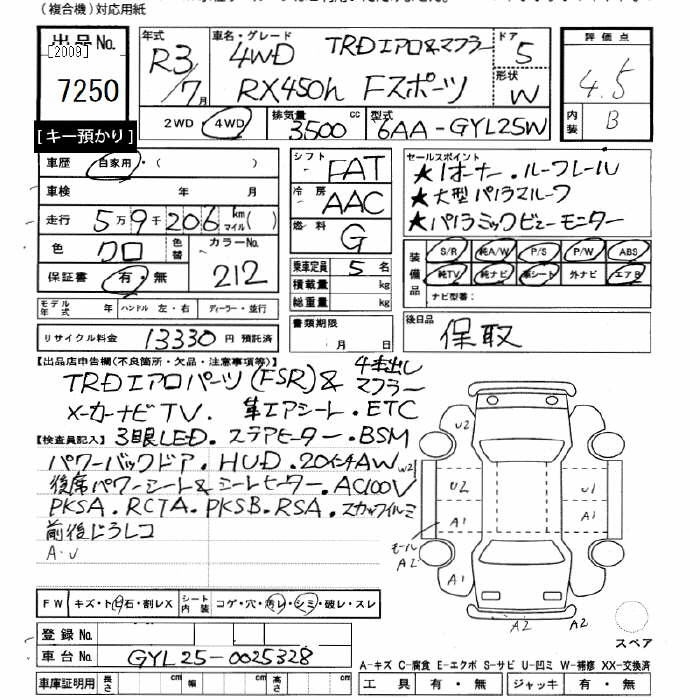 (複合機)対応用紙
出品No.
[2009]
7250
[キー預かり]
年式
R3/7月
車名・グレード
4WD TRDエアロ&マフラー
RX450h Fスポーツ
ドア
5
形状
W
評価点
4.5
内装
B
2WD・4WD
排気量
3500 cc
型式
6AA-GYL25W
車歴 自家用・( )
車検 年 月
走行 5万9千206 km マイル( )
色 クロ 色替 カラーNo. 212
保証書 有・無
モデル年式 年 ハンドル 左・右 ディーラー・並行
リサイクル料金 13330 円 預託済
シフト FAT
冷房 AAC
燃料 G
乗車定員 5 名
積載量 kg
総重量 kg
書類期限 月 日
セールスポイント
★1オーナー.ルーフレール
★大型パノラマルーフ
★パノラミックビューモニター
装備品
S/R 純A/W P/S P/W ABS
純TV 純ナビ 革シート 外ナビ エアB
ナビ型番:
後日品
保取
【出品店申告欄(不良箇所・欠品・注意事項等)】
TRDエアロパーツ(FSR)& 4本出しマフラー
メーカーナビTV. 革エアシート.ETC
【検査員記入】 3眼LED.ステアヒーター.BSM
パワーバックドア.HUD.20インチAW
後席パワーシート&シートヒーター.AC100V
PKSA.RCTA.PKSB.RSA.スカッフイルミ
前後ドラレコ
A・U
U2
W2
U2
U1
A1
A1
モール A2
A1
A2
A2
スペア
FW キズ・ト石・割レX シート内装 コゲ・穴・汚レ・シミ・破レ・スレ
登録No.
車台No. GYL25-0025328
車庫証明用 長さ cm 幅 cm 高さ cm
A-キズ C-腐食 E-エクボ S-サビ U-凹ミ W-補修 XX-交換済
工具 有・無 ジャッキ 有・無